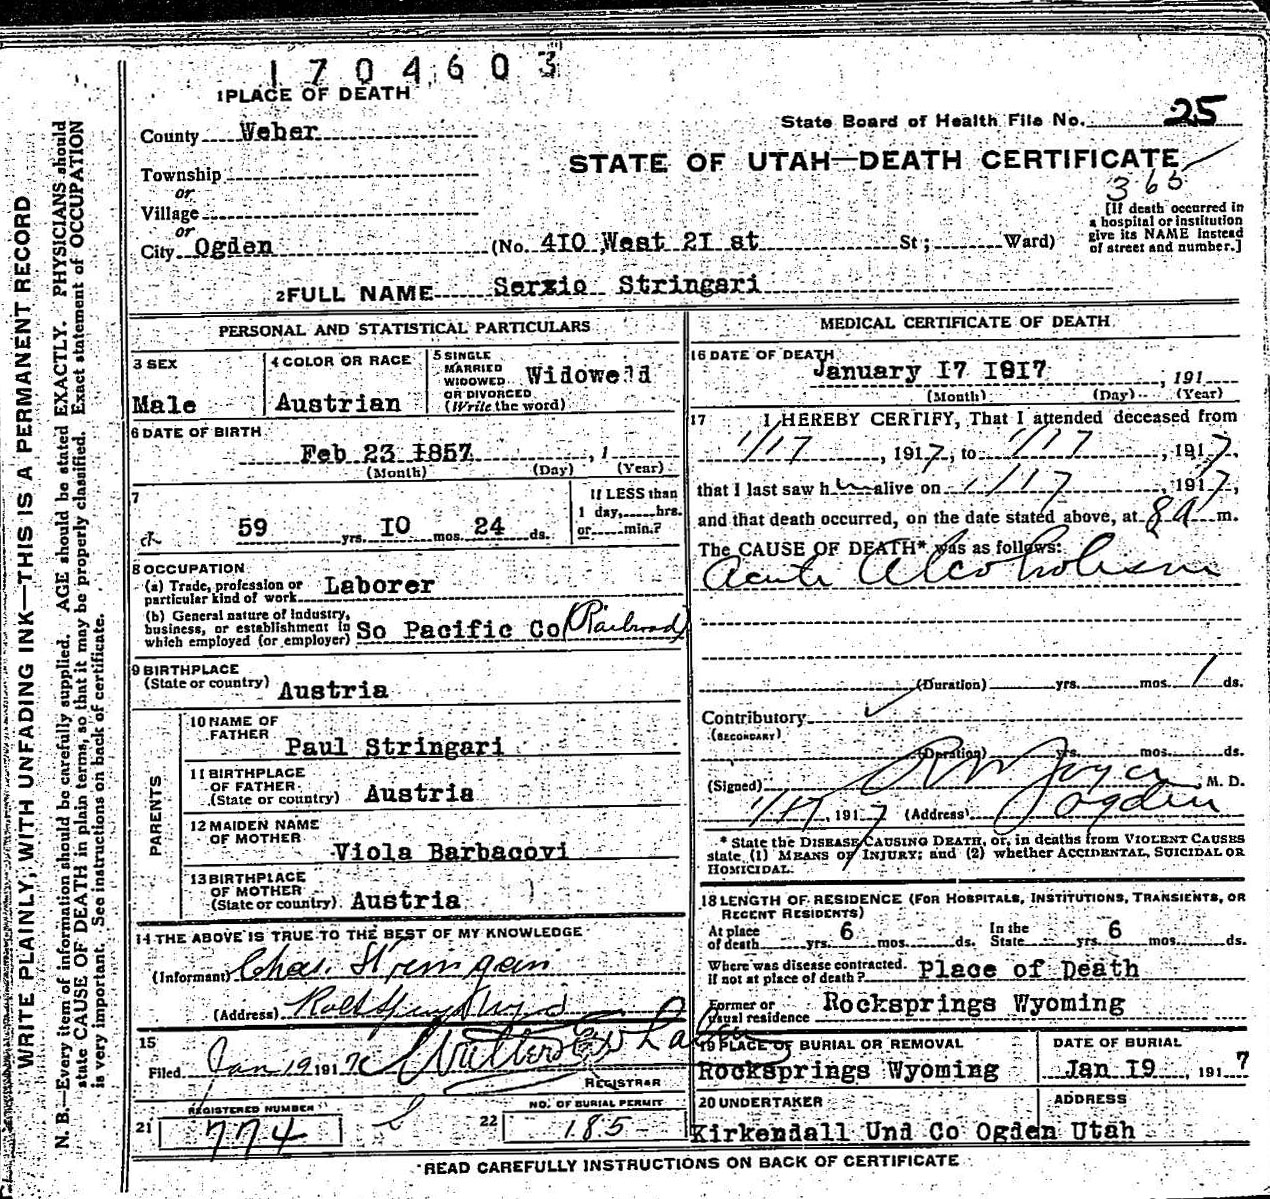 1704603
1 PLACE OF DEATH
County Weber
State Board of Health File No. 25
STATE OF UTAH—DEATH CERTIFICATE
365
Township
or
Village
or
City Ogden (No. 410 West 21 st St ; Ward)
[If death occurred in
a hospital or institution
give its NAME instead
of street and number.]
2 FULL NAME Serzio Stringari
PERSONAL AND STATISTICAL PARTICULARS
3 SEX
Male
4 COLOR OR RACE
Austrian
5 SINGLE
MARRIED
WIDOWED
OR DIVORCED
(Write the word)
Widowe d
6 DATE OF BIRTH
Feb 23 1857 , 1
(Month) (Day) (Year)
7
59 yrs. 10 mos. 24 ds.
If LESS than
1 day, hrs.
or min.?
8 OCCUPATION
(a) Trade, profession or
particular kind of work Laborer
(b) General nature of industry,
business, or establishment in
which employed (or employer) So Pacific Co (Railroad)
9 BIRTHPLACE
(State or country) Austria
PARENTS
10 NAME OF
FATHER
Paul Stringari
11 BIRTHPLACE
OF FATHER
(State or country) Austria
12 MAIDEN NAME
OF MOTHER
Viola Barbacovi
13 BIRTHPLACE
OF MOTHER
(State or country) Austria
14 THE ABOVE IS TRUE TO THE BEST OF MY KNOWLEDGE
(Informant) Chas.
(Address)
15
Filed Jan 19 1917
REGISTRAR
REGISTERED NUMBER
21 774
NO. OF BURIAL PERMIT
22 185
MEDICAL CERTIFICATE OF DEATH
16 DATE OF DEATH
January 17 1917 , 191
(Month) (Day) (Year)
17 I HEREBY CERTIFY, That I attended deceased from
1/17 , 1917, to 1/17 , 1917,
that I last saw him alive on 1/17 , 1917,
and that death occurred, on the date stated above, at 8 a m.
The CAUSE OF DEATH* was as follows:
Acute Alcoholism
(Duration) yrs. mos. 1 ds.
Contributory
(SECONDARY)
(Duration) yrs. mos. ds.
(Signed) R W Joyce, M. D.
1/17, 1917 (Address) Ogden
* State the DISEASE CAUSING DEATH, or, in deaths from VIOLENT CAUSES
state (1) MEANS OF INJURY; and (2) whether ACCIDENTAL, SUICIDAL OR
HOMICIDAL.
18 LENGTH OF RESIDENCE (FOR HOSPITALS, INSTITUTIONS, TRANSIENTS, OR
RECENT RESIDENTS)
At place
of death yrs. 6 mos. ds.
In the
State yrs. 6 mos. ds.
Where was disease contracted.
if not at place of death? Place of Death
Former or
usual residence Rocksprings Wyoming
19 PLACE OF BURIAL OR REMOVAL
Rocksprings Wyoming
DATE OF BURIAL
Jan 19 , 1917
20 UNDERTAKER
ADDRESS
Kirkendall Und Co Ogden Utah
READ CAREFULLY INSTRUCTIONS ON BACK OF CERTIFICATE
WRITE PLAINLY, WITH UNFADING INK—THIS IS A PERMANENT RECORD
N. B.—Every item of information should be carefully supplied. AGE should be stated EXACTLY. PHYSICIANS should
state CAUSE OF DEATH in plain terms, so that it may be properly classified. Exact statement of OCCUPATION
is very important. See instructions on back of certificate.